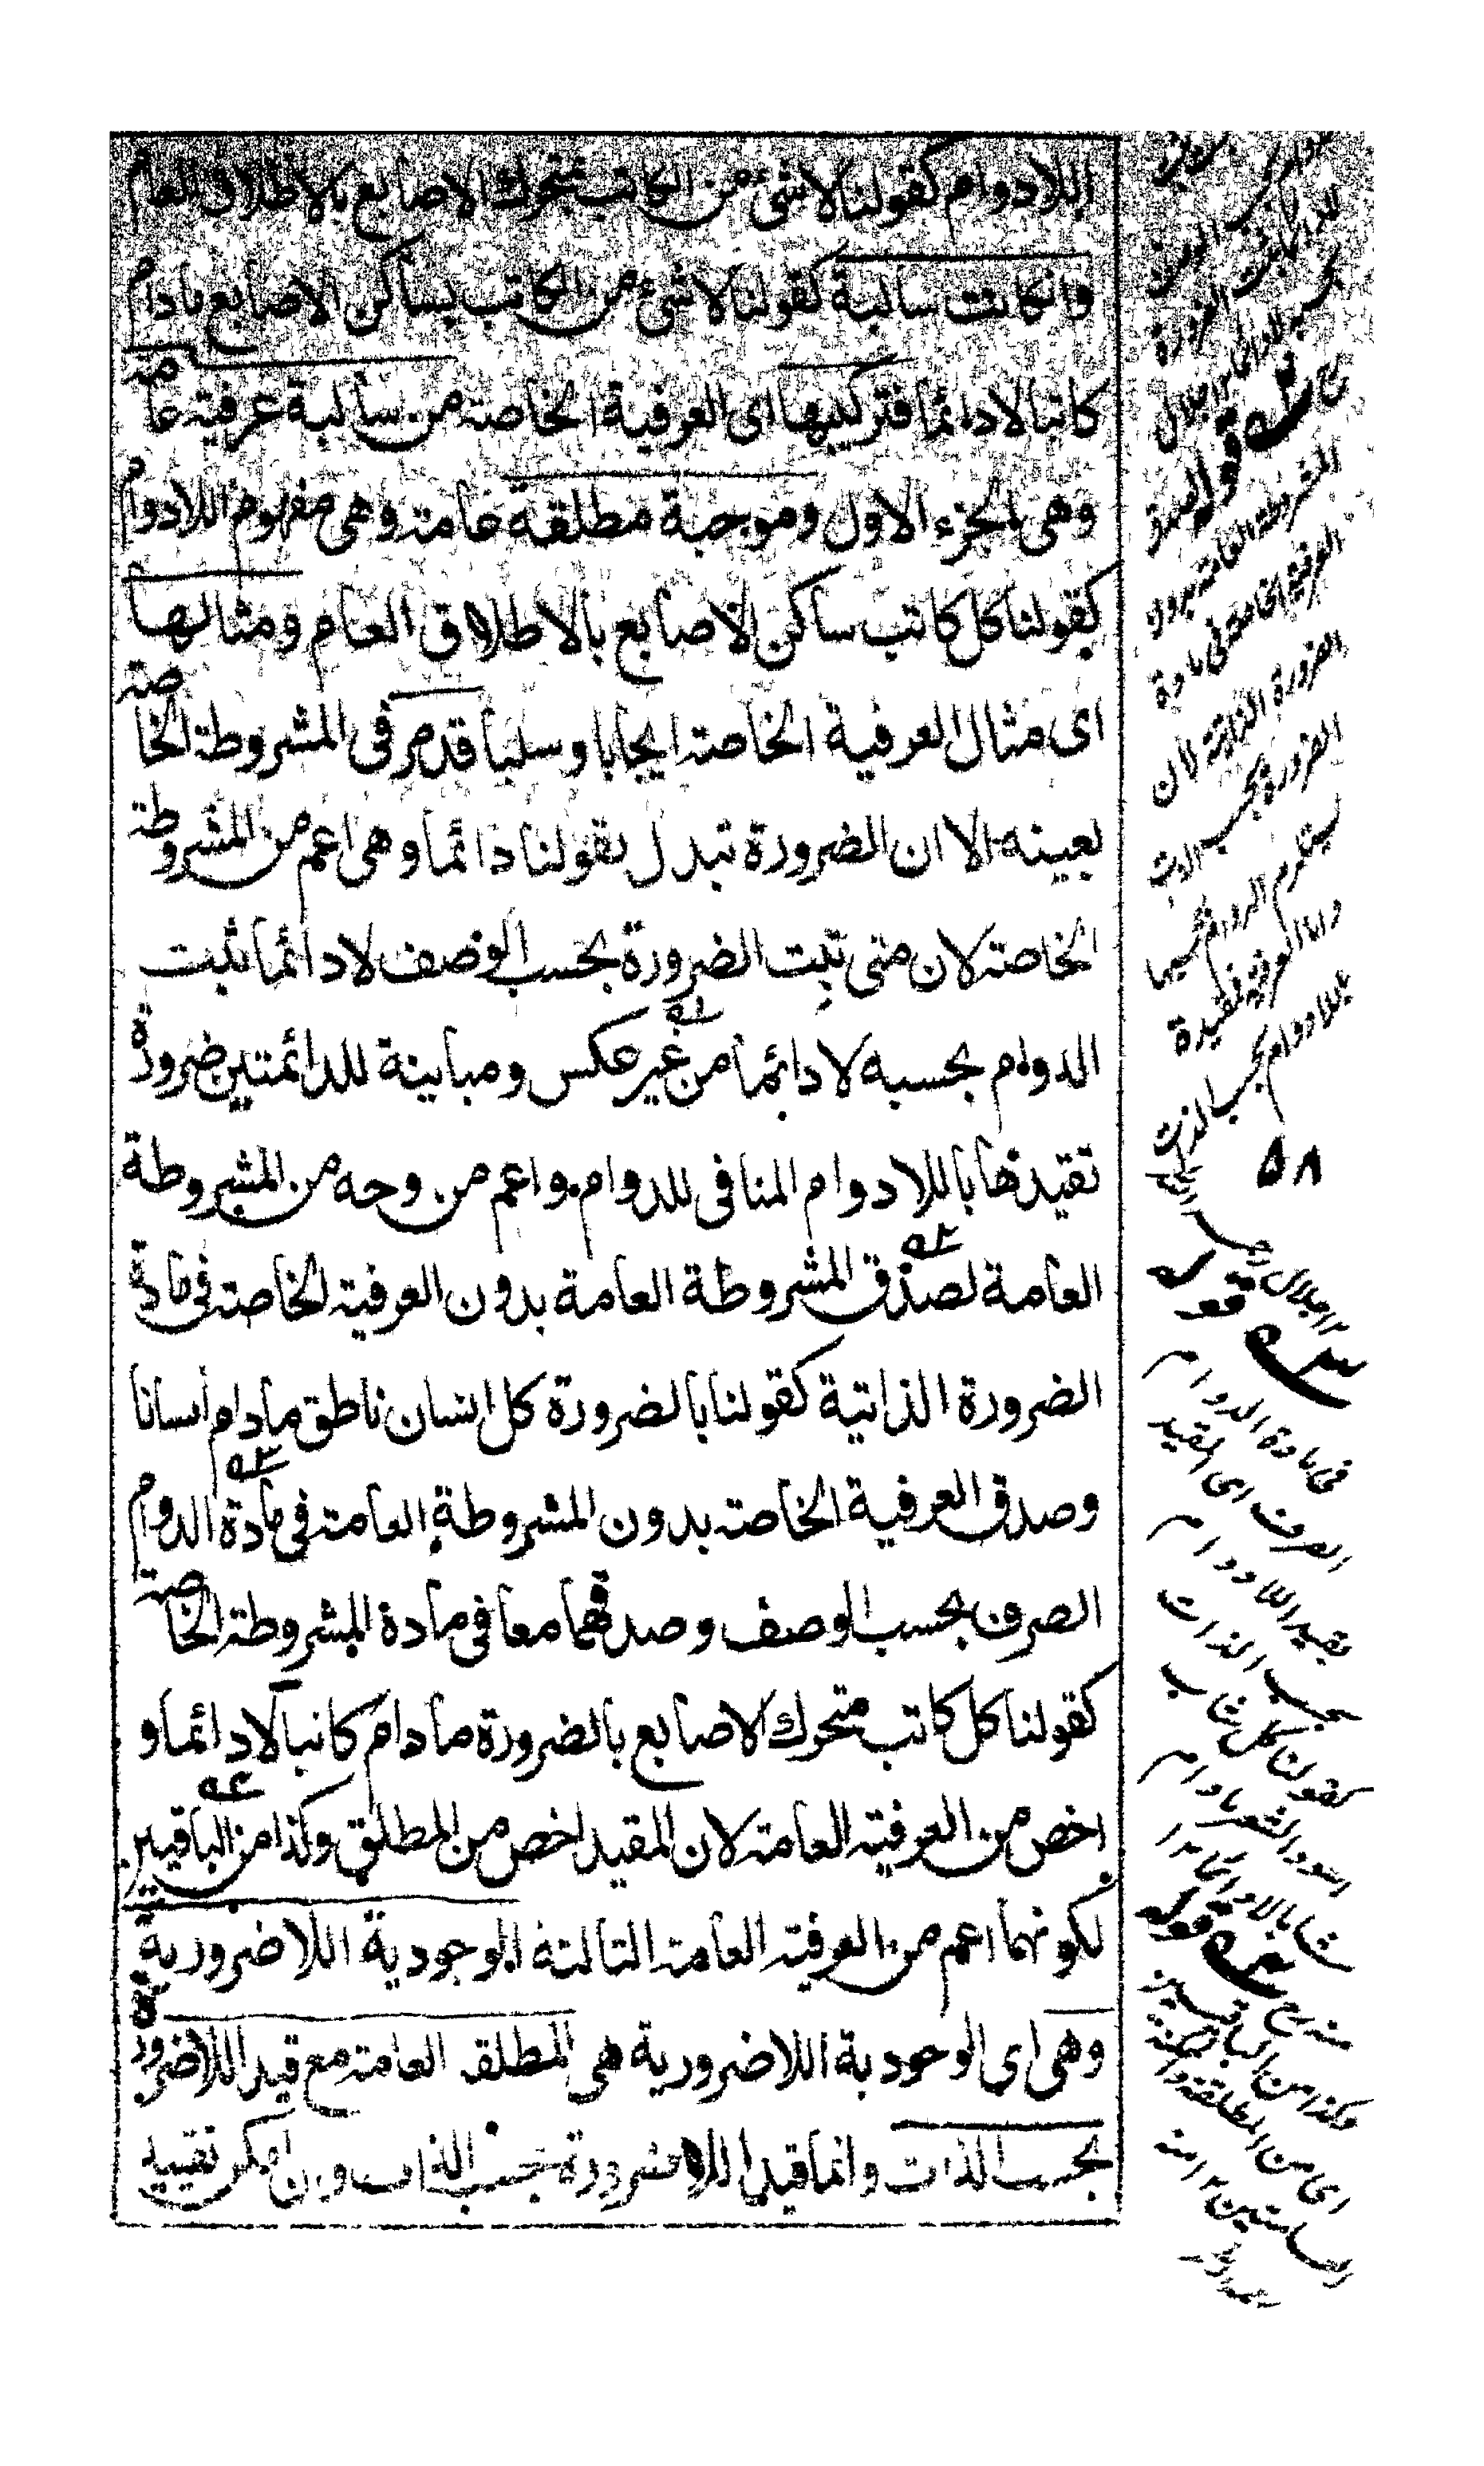 اللادوام كقولنا لا شئ من الكاتب بمتحرك الاصابع بالاطلاق العام
وانكانت سالبة كقولنا لا شئ من الكاتب بساكن الاصابع مادام
كاتبا لا دائما فتركيبها اى العرفية الخاصة من سالبة عرفية عامة
وهى الجزء الاول وموجبة مطلقة عامة وهى مفهوم اللادوام
كقولنا كل كاتب ساكن الاصابع بالاطلاق العام ومثالها
اى مثال العرفية الخاصة ايجابا وسلبا قد مر فى المشروطة الخاصة
بعينه الا ان الضرورة تبدل بقولنا دائما وهى اعم من المشروطة
الخاصة لان متى ثبت الضرورة بحسب الوصف لا دائما ثبت
الدوام بحسبه لا دائما من غير عكس ومباينة للدائمتين ضرورة
تقيدها باللادوام المنافى للدوام واعم من وجه من المشروطة
العامة لصدق المشروطة العامة بدون العرفية الخاصة فى مادة
الضرورة الذاتية كقولنا بالضرورة كل انسان ناطق مادام انسانا
وصدق العرفية الخاصة بدون المشروطة العامة فى مادة الدوام
الصرف بحسب الوصف وصدقهما معا فى مادة المشروطة الخاصة
كقولنا كل كاتب متحرك الاصابع بالضرورة مادام كاتبا لا دائما و
اخص من العرفية العامة لان المقيد اخص من المطلق وكذا من الباقيين
لكونهما اعم من العرفية العامة الثالثة الوجودية اللاضرورية
وهى اى الوجودية اللاضرورية هى المطلقة العامة مع قيد اللاضرورة
بحسب الذات وانما قيد اللاضرورة بحسب الذات وان امكن تقييد
المشروطة العامة بدون
العرفية الخاصة فى مادة
الضرورة الذاتية لان
الضرورة بحسب الذات
يستلزم الدوام بحسبها
والعرفية مقيدة
باللادوام بحسب الذات
٥٨
قوله
فى مادة الدوام
الصرف اى المقيد
بقيد اللادوام
بحسب الذات
كقولنا كل شاب
اسود الشعر مادام
شابا لا دائما
قوله
وكذا من الباقيين
اى من المطلقة